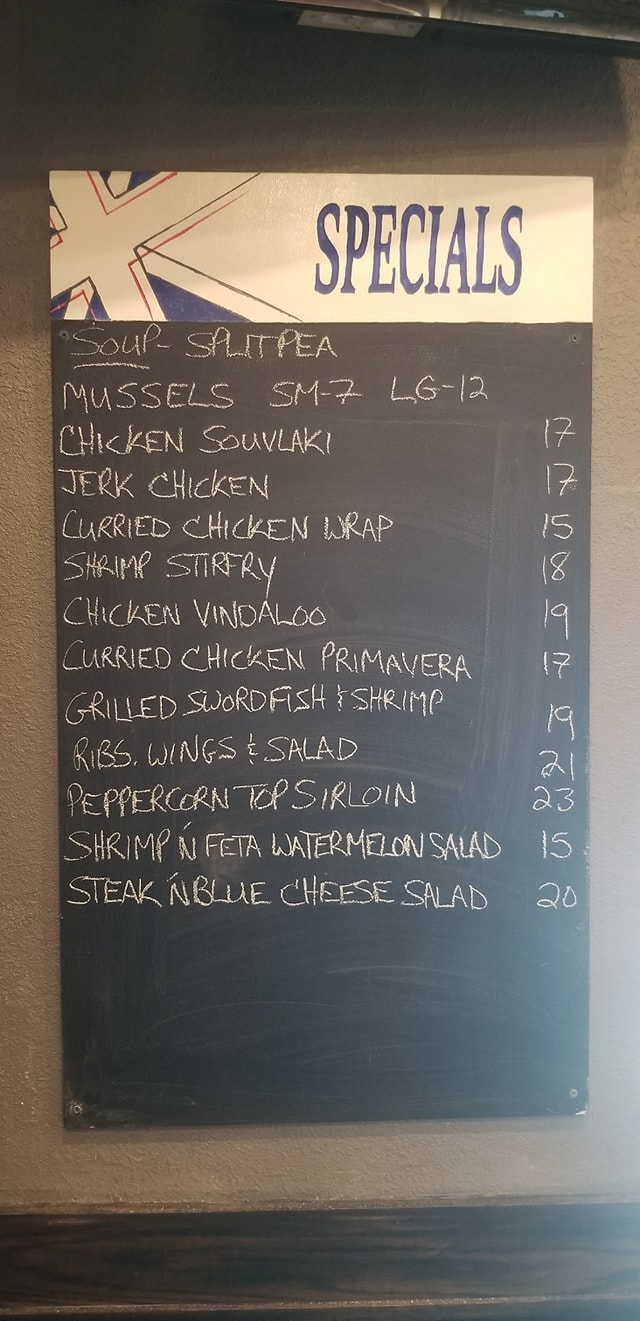 SPECIALS
SOUP- SPLIT PEA
MUSSELS SM-7 LG-12
CHICKEN SOUVLAKI 17
JERK CHICKEN 17
CURRIED CHICKEN WRAP 15
SHRIMP STIRFRY 18
CHICKEN VINDALOO 19
CURRIED CHICKEN PRIMAVERA 17
GRILLED SWORDFISH & SHRIMP 19
RIBS, WINGS & SALAD 21
PEPPERCORN TOP SIRLOIN 23
SHRIMP 'N FETA WATERMELON SALAD 15
STEAK 'N BLUE CHEESE SALAD 20